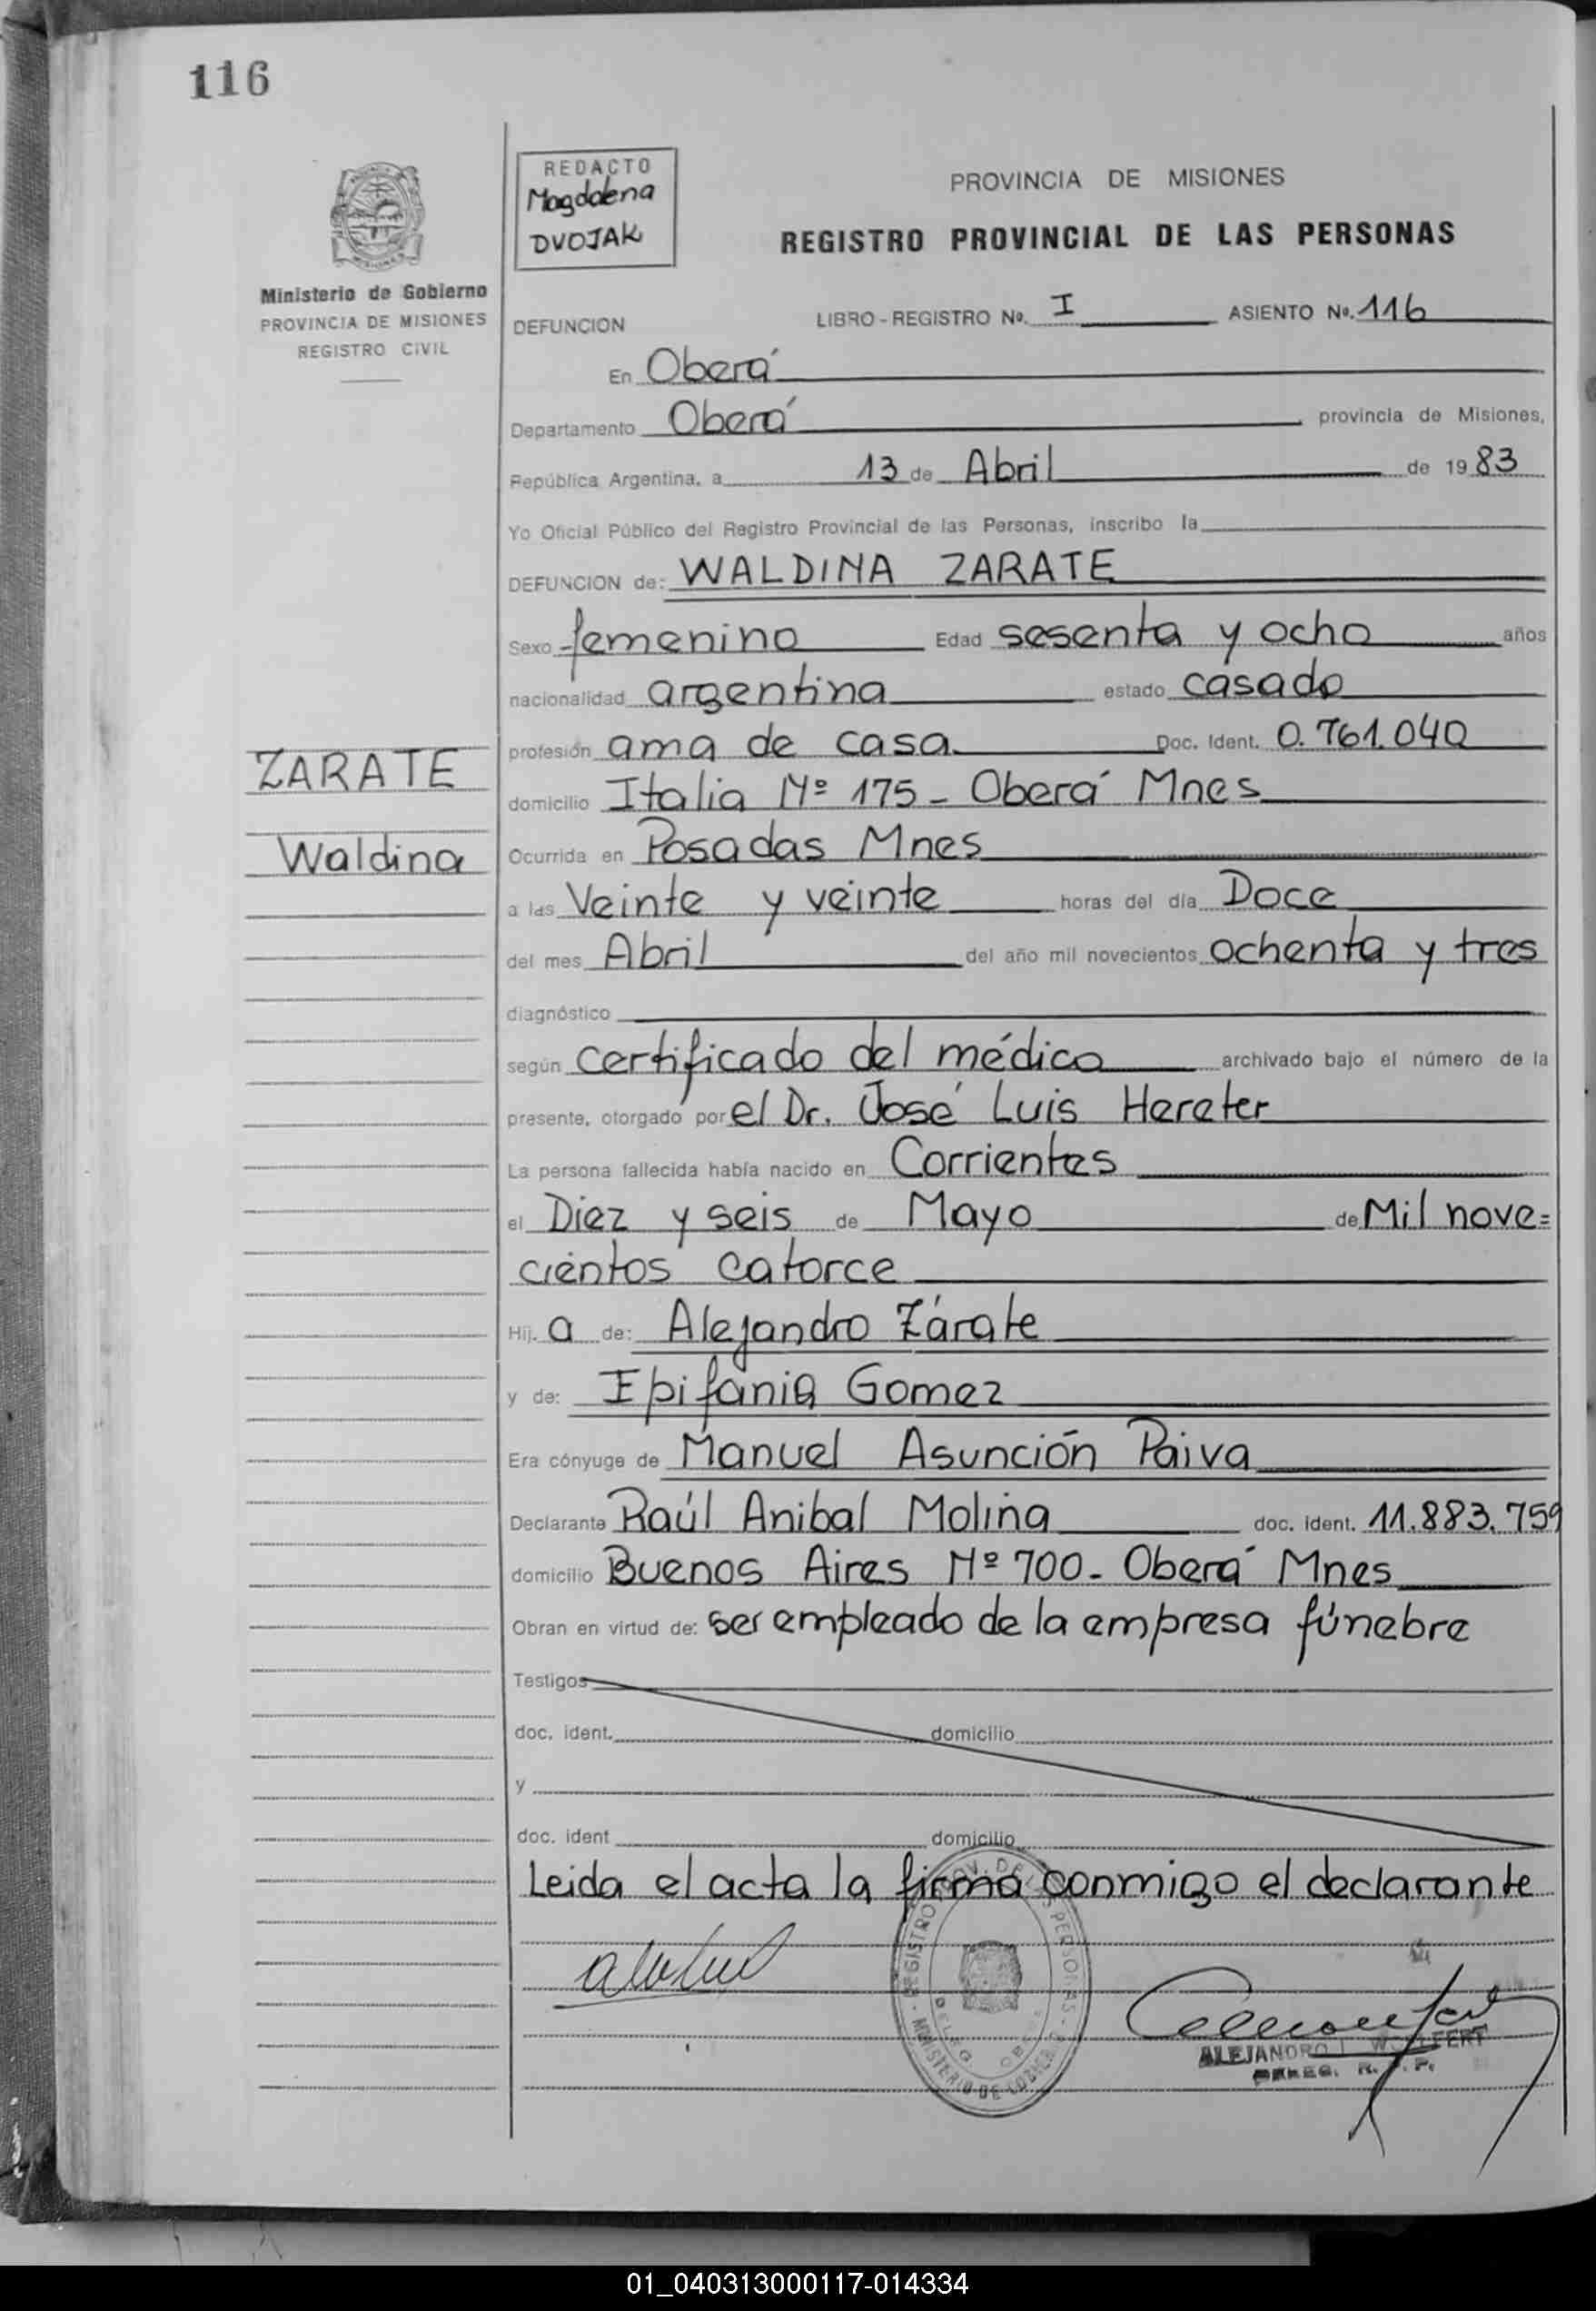 116
REDACTO
Magdalena
DVOJAK
PROVINCIA DE MISIONES
REGISTRO PROVINCIAL DE LAS PERSONAS
Ministerio de Gobierno
PROVINCIA DE MISIONES
REGISTRO CIVIL
DEFUNCION LIBRO - REGISTRO Nº. I ASIENTO Nº. 116
En Oberá
Departamento Oberá provincia de Misiones,
República Argentina, a 13 de Abril de 1983
Yo Oficial Público del Registro Provincial de las Personas, inscribo la
DEFUNCION de: WALDINA ZARATE
Sexo femenino Edad sesenta y ocho años
nacionalidad argentina estado casado
ZARATE
Waldina
profesión ama de casa Doc. Ident. 0.761.040
domicilio Italia Nº 175 - Oberá Mnes
Ocurrida en Posadas Mnes
a las Veinte y veinte horas del día Doce
del mes Abril del año mil novecientos ochenta y tres
diagnóstico
según certificado del médico archivado bajo el número de la
presente, otorgado por el Dr. José Luis Hereter
La persona fallecida había nacido en Corrientes
el Diez y seis de Mayo de Mil nove=
cientos catorce
Hij. a de: Alejandro Zárate
y de: Epifania Gomez
Era cónyuge de Manuel Asunción Paiva
Declarante Raúl Anibal Molina doc. ident. 11.883.759
domicilio Buenos Aires Nº 700 - Oberá Mnes
Obran en virtud de: ser empleado de la empresa fúnebre
Testigos
doc. ident. domicilio
y
doc. ident domicilio
Leida el acta la firma conmigo el declarante
ALEJANDRO
R. P.
01_040313000117-014334